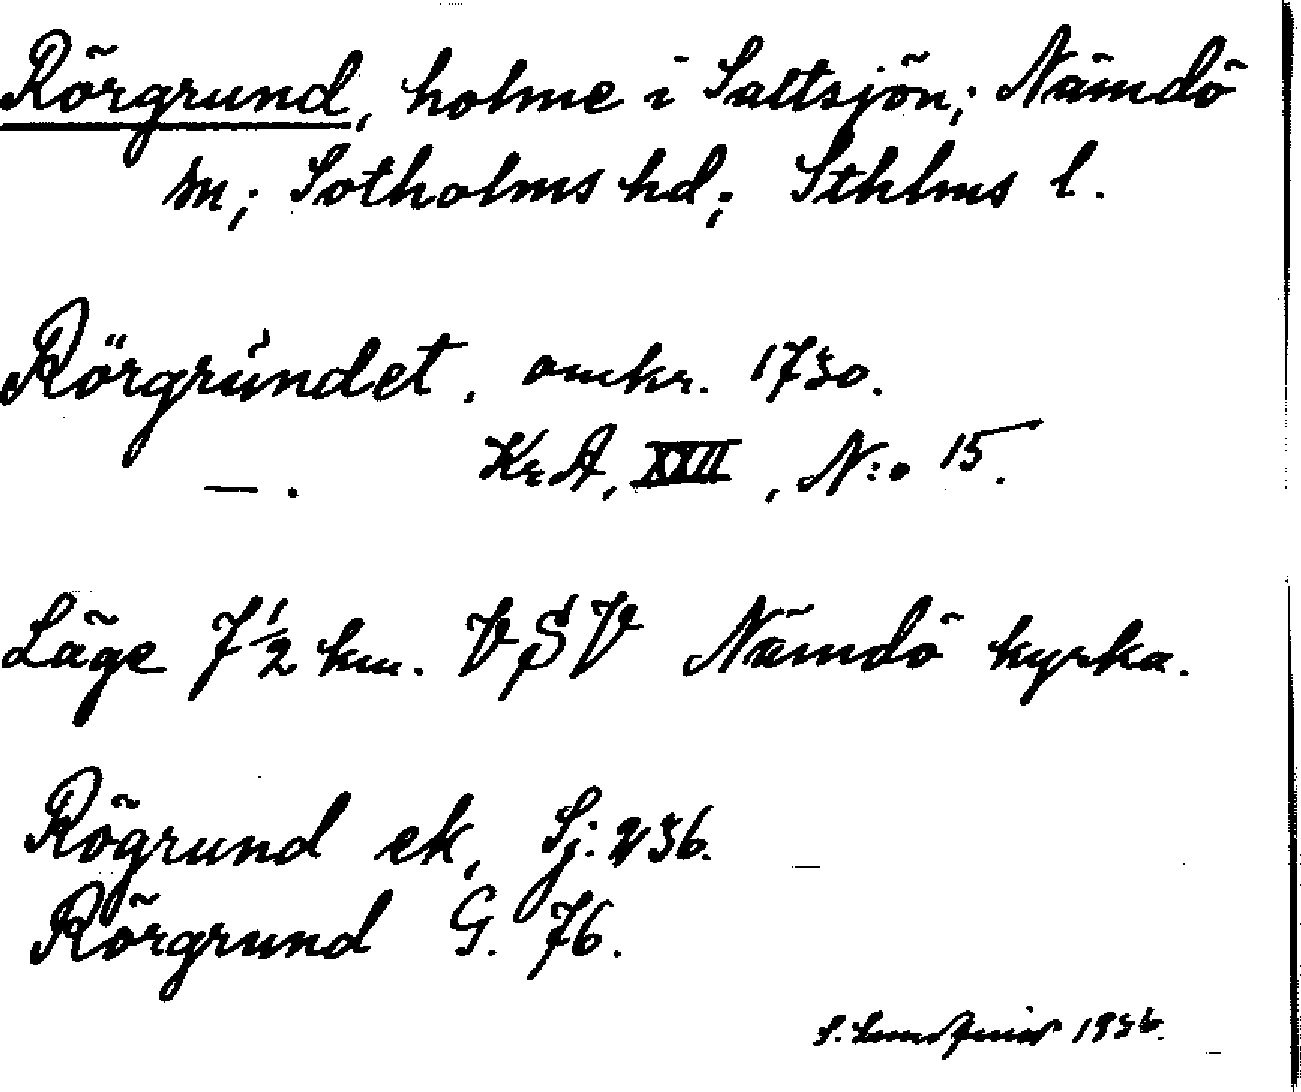 Rörgrund, holme i Saltsjön; Nämdö
sn; Sotholms hd; Sthlms l.
Rörgrundet, omkr. 1730.
KrA, XXII, N:o 15.
— .
Läge 7 1/2 km. VSV Nämdö kyrka.
Rögrund ek, Sj: 236.
Rörgrund G. 76.
S. 1936.